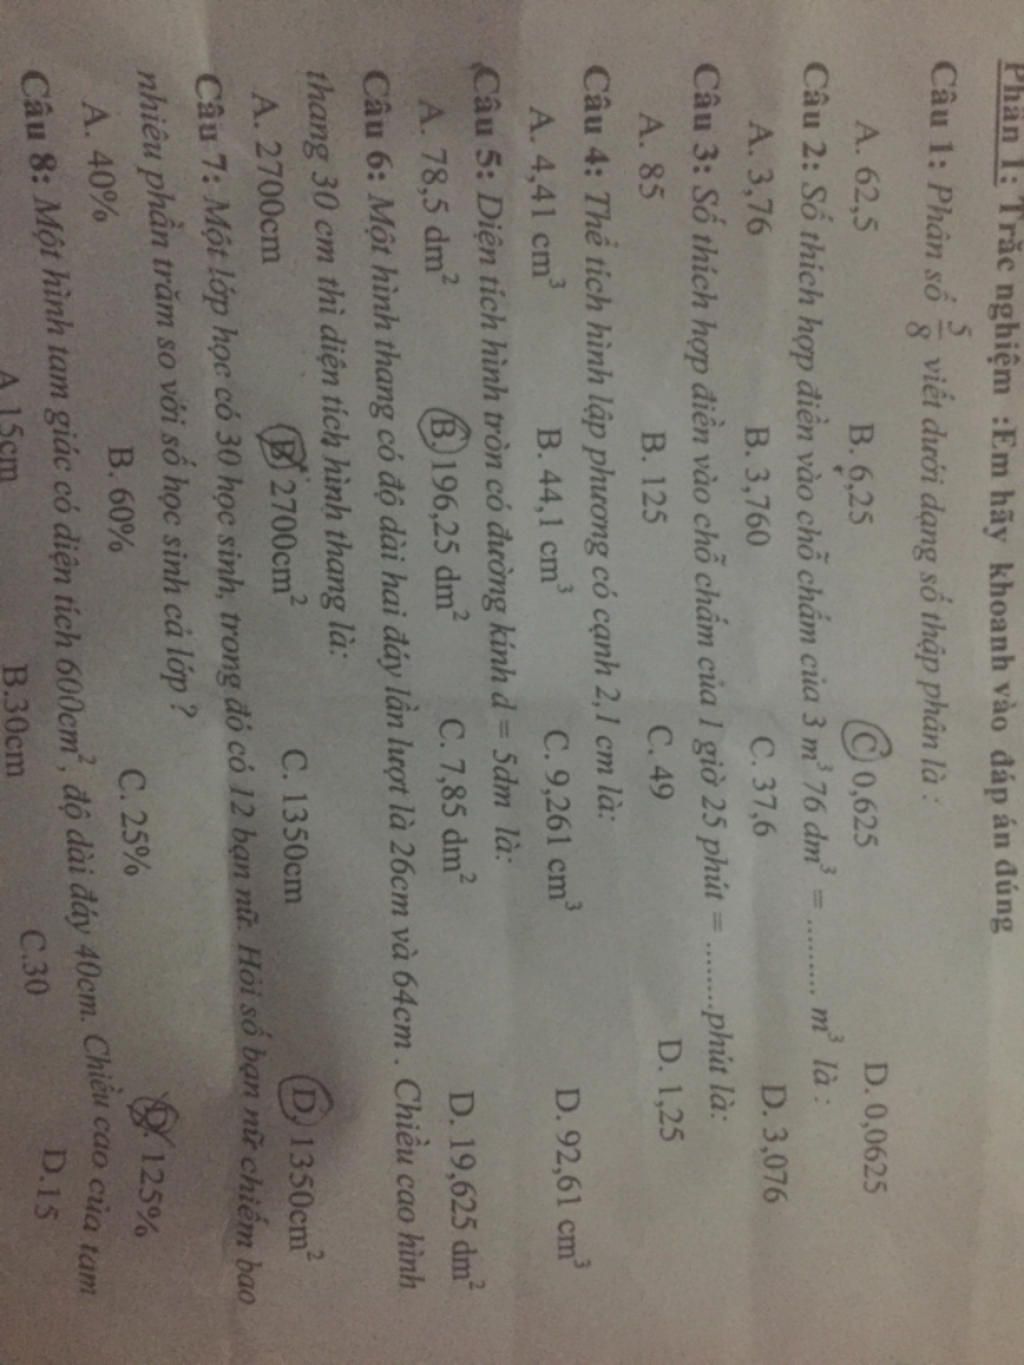 Phần 1: Trắc nghiệm :Em hãy khoanh vào đáp án đúng
Câu 1: Phân số 5/8 viết dưới dạng số thập phân là :
A. 62,5 B. 6,25 C 0,625 D. 0,0625
Câu 2: Số thích hợp điền vào chỗ chấm của 3 m³ 76 dm³ = .......... m³ là :
A. 3,76 B. 3,760 C. 37,6 D. 3,076
Câu 3: Số thích hợp điền vào chỗ chấm của 1 giờ 25 phút = .........phút là:
A. 85 B. 125 C. 49 D. 1,25
Câu 4: Thể tích hình lập phương có cạnh 2,1 cm là:
A. 4,41 cm³ B. 44,1 cm³ C. 9,261 cm³ D. 92,61 cm³
Câu 5: Diện tích hình tròn có đường kính d = 5dm là:
A. 78,5 dm² B 196,25 dm² C. 7,85 dm² D. 19,625 dm²
Câu 6: Một hình thang có độ dài hai đáy lần lượt là 26cm và 64cm . Chiều cao hình
thang 30 cm thì diện tích hình thang là:
A. 2700cm B. 2700cm² C. 1350cm D. 1350cm²
Câu 7: Một lớp học có 30 học sinh, trong đó có 12 bạn nữ. Hỏi số bạn nữ chiếm bao
nhiêu phần trăm so với số học sinh cả lớp ?
A. 40% B. 60% C. 25% D. 125%
Câu 8: Một hình tam giác có diện tích 600cm², độ dài đáy 40cm. Chiều cao của tam
A.15cm B.30cm C.30 D.15